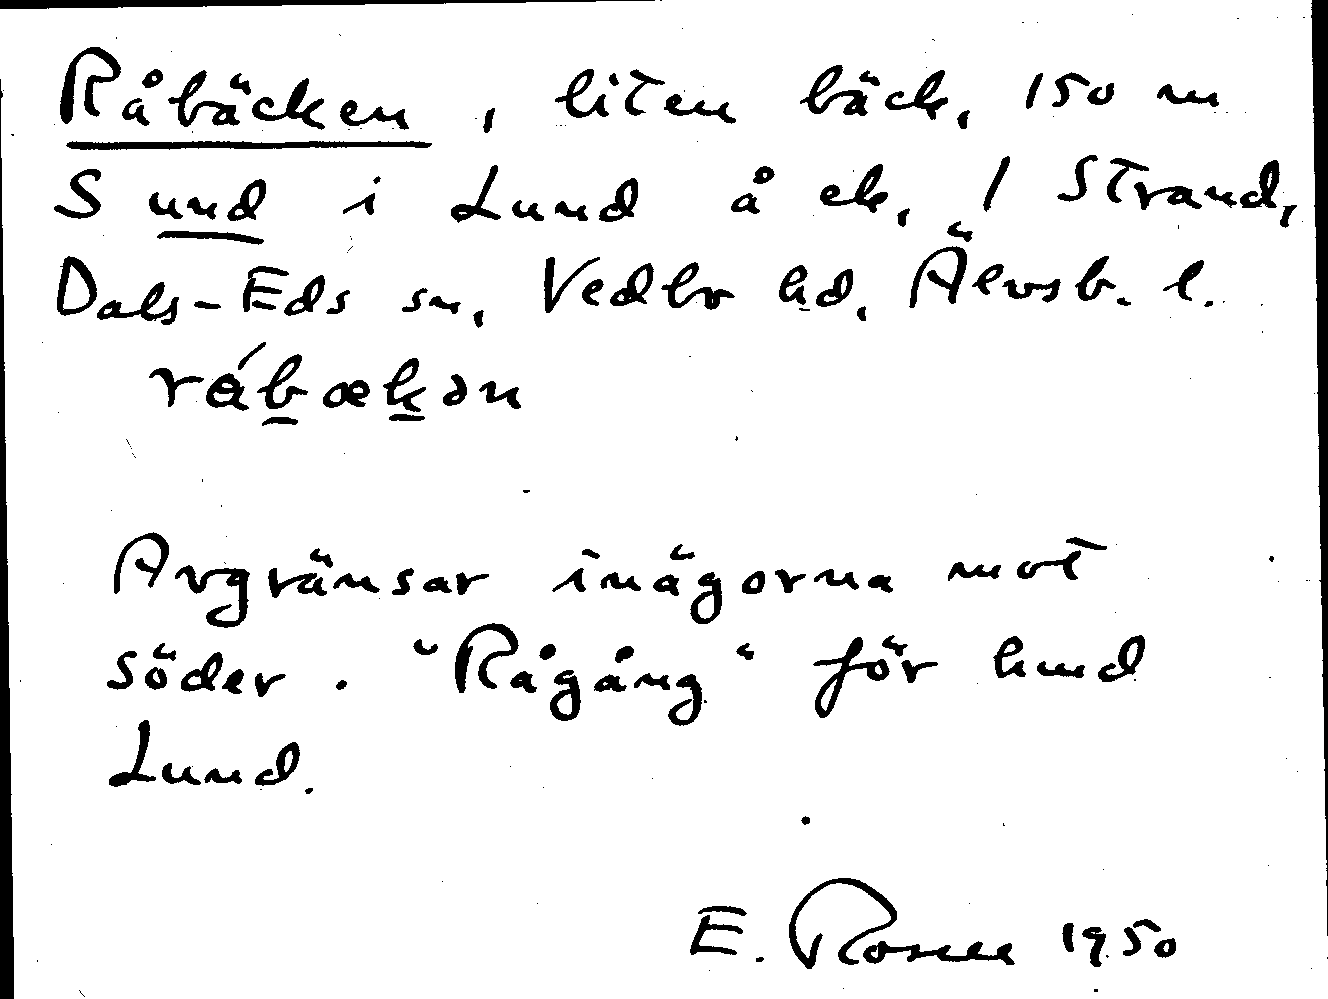 Råbäcken, liten bäck, 150 m
S und i Lund å ek. 1 Strand,
Dals-Eds sn, Vedbo hd, Älvsb. l.
råbækən
Avgränsar inägorna mot
söder. "Rågång" för hmd
Lund.
E. Rosell 1950